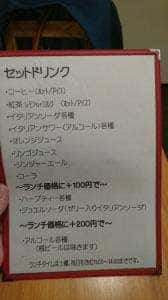 セットドリンク
・コーヒー(ホット/アイス)
・紅茶 レモンorミルク (ホット/アイス)
・イタリアンソーダ各種
・イタリアンサワー(アルコール)各種
・オレンジジュース
・リンゴジュース
・ジンジャーエール
・コーラ
～ランチ価格に+100円で～
・ハーブティー各種
・ジュエルソーダ(ゼリー入りイタリアンソーダ)
～ランチ価格に+200円で～
・アルコール各種
(瓶ビールは除きます)
ランチタイムは土曜、祝日を含む